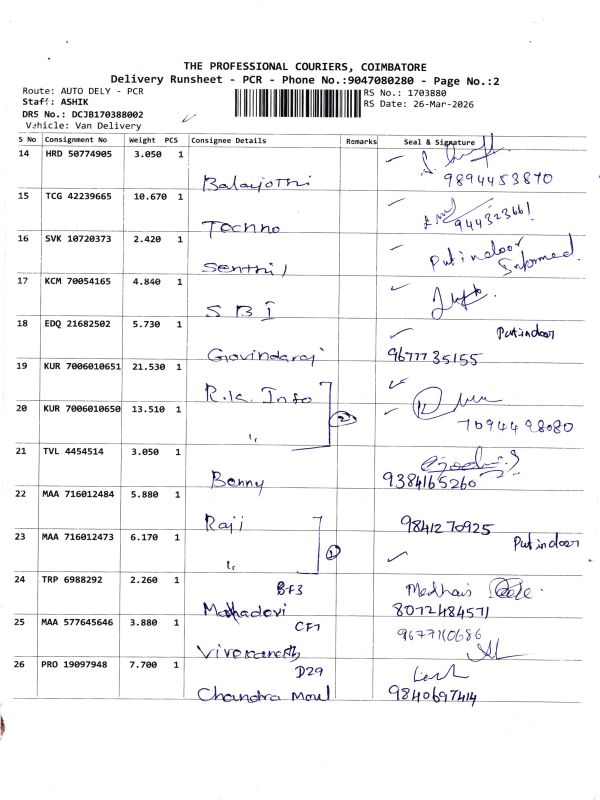 THE PROFESSIONAL COURIERS, COIMBATORE
Delivery Runsheet - PCR - Phone No.:9047080280 - Page No.:2
Route: AUTO DELY - PCR
RS No.: 1703880
Staff: ASHIK
RS Date: 26-Mar-2026
DRS No.: DCJB170388002
Vehicle: Van Delivery
S No Consignment No Weight PCS Consignee Details Remarks Seal & Signature
14 HRD 50774905 3.050 1
Balajothi 9894453870
15 TCG 42239665 10.670 1
Techno 944323661
16 SVK 10720373 2.420 1
Senthil Put indoor Informed
17 KCM 70054165 4.840 1
SBI
18 EDQ 21682502 5.730 1 Put indoor
Govindaraj 9677735155
19 KUR 7006010651 21.530 1
R.K. Info
20 KUR 7006010650 13.510 1
" 2 7094498080
21 TVL 4454514 3.050 1
Benny 9384165260
22 MAA 716012484 5.880 1
Raji 9841270925
23 MAA 716012473 6.170 1 Put indoor
" 1
24 TRP 6988292 2.260 1 BF3
Mahadevi 8072484571
25 MAA 577645646 3.880 1 CF7 9677110686
26 PRO 19097948 7.700 1 D29
Chandra Moul 9840697414